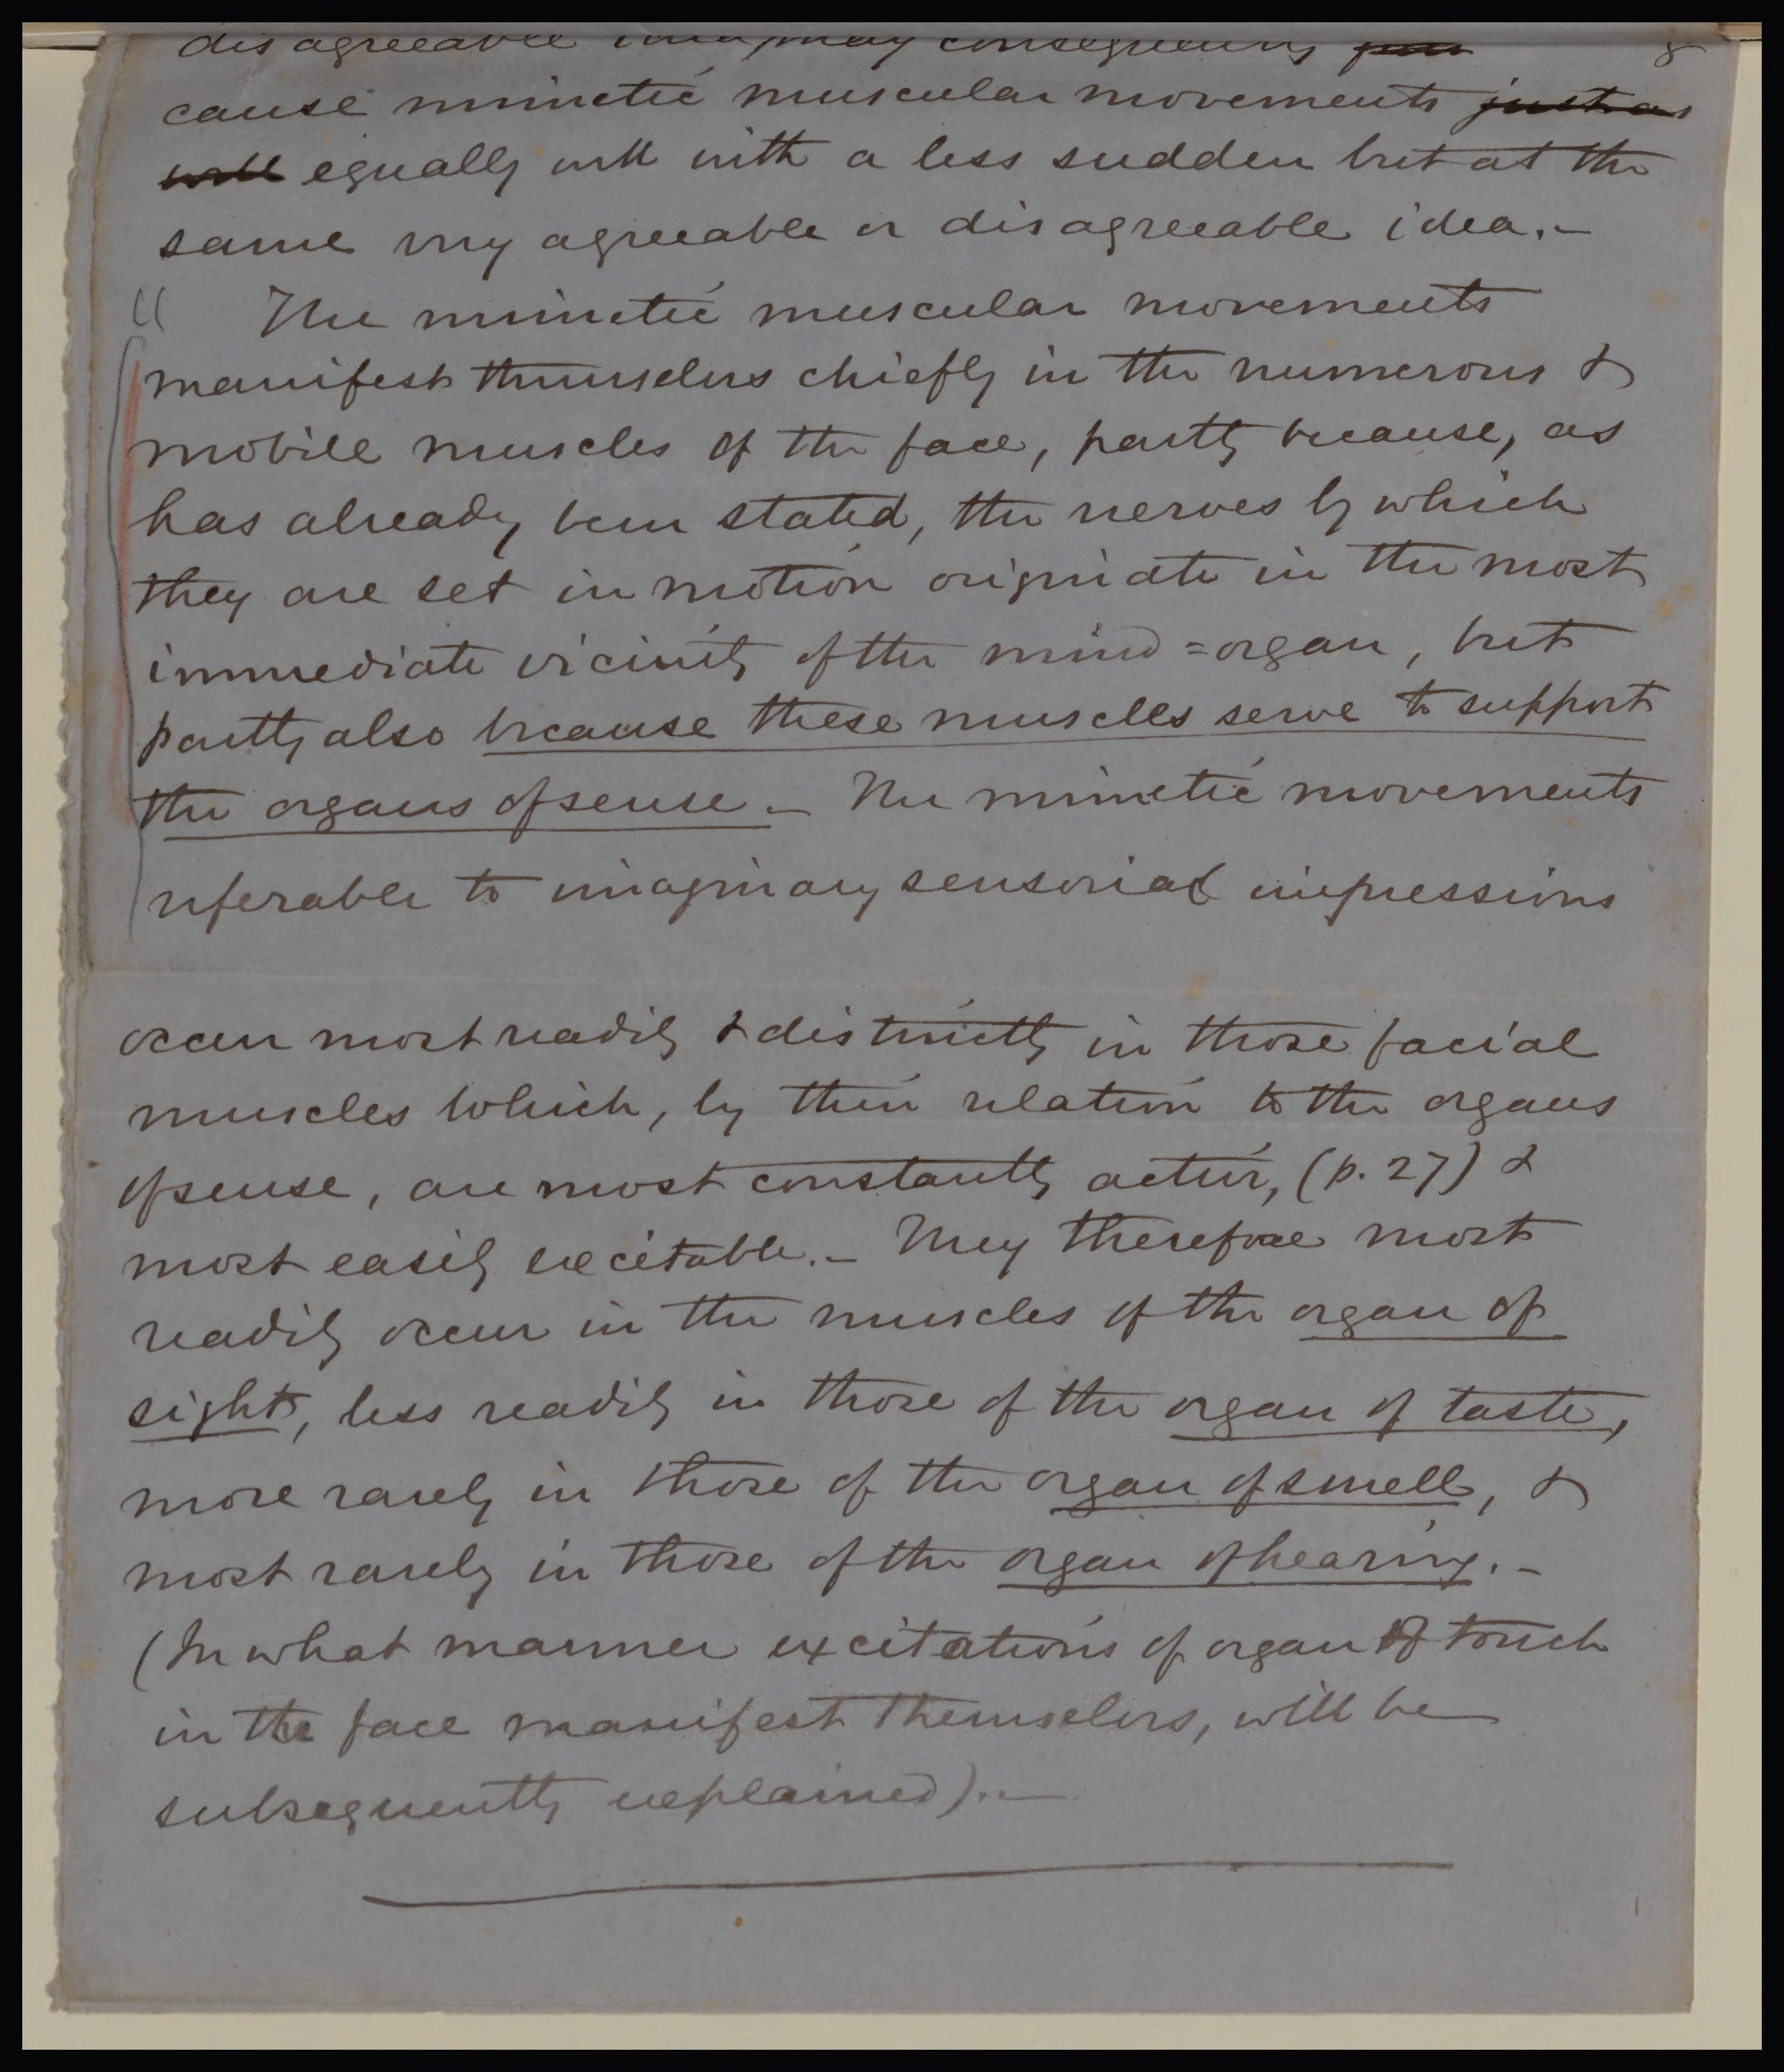 disagreeable idea, may consequently
8
cause mimetic muscular movements just as
well equally well with a less sudden but at the
same very agreeable or disagreeable idea.—
" The mimetic muscular movements
manifest themselves chiefly in the numerous &
mobile muscles of the face, partly because, as
has already been stated, the nerves by which
they are set in motion originate in the most
immediate vicinity of the mind=organ, but
partly also because these muscles serve to support
the organs of sense.— The mimetic movements
referable to imaginary sensorial impressions
occur most readily & distinctly in those facial
muscles which, by their relation to the organs
of sense, are most constantly active, (p. 27) &
most easily excitable.— They therefore most
readily occur in the muscles of the organ of
sight, less readily in those of the organ of taste,
more rarely in those of the organ of smell, &
most rarely in those of the organ of hearing.—
(In what manner excitations of organ of touch
in the face manifest themselves, will be
subsequently explained).—